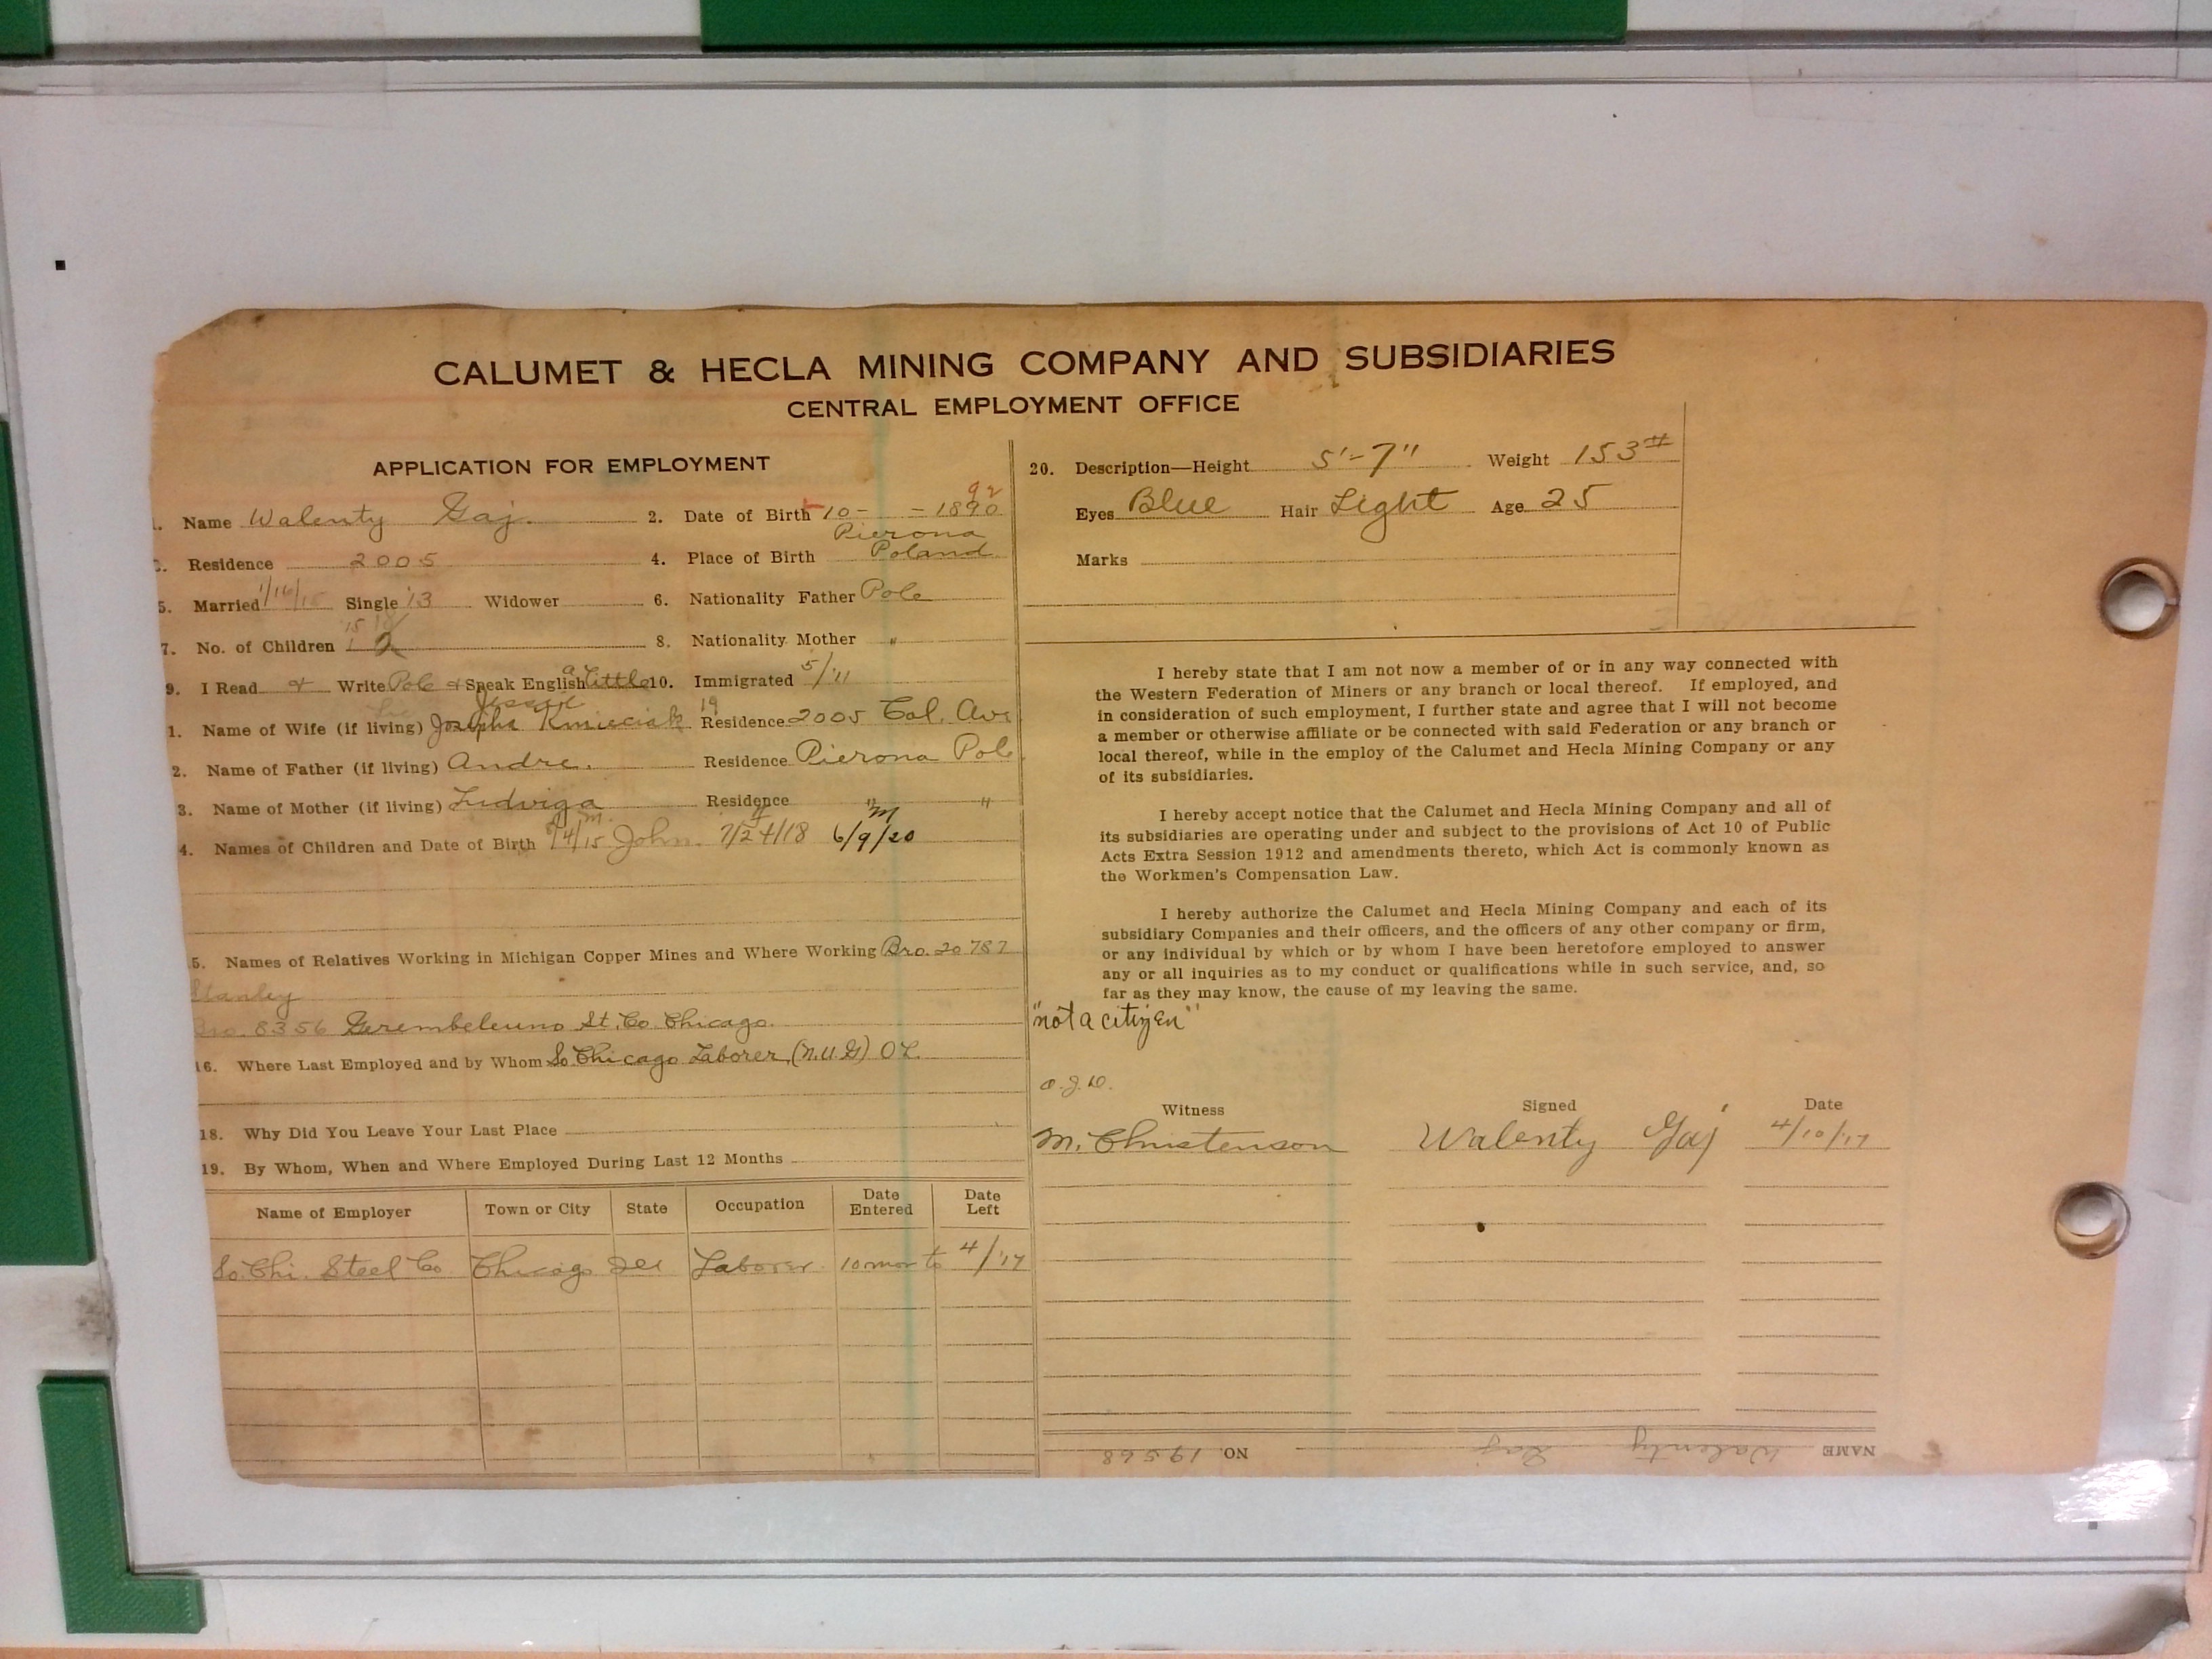 CALUMET & HECLA MINING COMPANY AND SUBSIDIARIES
CENTRAL EMPLOYMENT OFFICE
APPLICATION FOR EMPLOYMENT
1. Name Walenty Gaj. 2. Date of Birth 10- - 1890 92
Residence 2005 4. Place of Birth Pierona Poland
5. Married 1/16/15 Single 13 Widower 6. Nationality Father Pole
7. No. of Children 2 8. Nationality Mother "
9. I Read & Write Pole & Speak English a little 10. Immigrated 5/'11
1. Name of Wife (if living) Josepha Kmieciak Residence 2005 Cal. Ave
2. Name of Father (if living) Andre. Residence Pierona Pol
3. Name of Mother (if living) Ludwiga Residence " "
4. Names of Children and Date of Birth John. 7/24/18 6/9/20 M
5. Names of Relatives Working in Michigan Copper Mines and Where Working Bro. 20787
Stanley
Bro. 8356 St. Co Chicago.
16. Where Last Employed and by Whom So. Chicago Laborer, (N.U.G)
18. Why Did You Leave Your Last Place
19. By Whom, When and Where Employed During Last 12 Months
Name of Employer Town or City State Occupation Date Entered Date Left
So. Chi. Steel Co Chicago Ill Laborer 10 mos to 4/'17
20. Description—Height 5'-7" Weight 153#
Eyes Blue Hair Light Age 25
Marks
I hereby state that I am not now a member of or in any way connected with
the Western Federation of Miners or any branch or local thereof. If employed, and
in consideration of such employment, I further state and agree that I will not become
a member or otherwise affiliate or be connected with said Federation or any branch or
local thereof, while in the employ of the Calumet and Hecla Mining Company or any
of its subsidiaries.
I hereby accept notice that the Calumet and Hecla Mining Company and all of
its subsidiaries are operating under and subject to the provisions of Act 10 of Public
Acts Extra Session 1912 and amendments thereto, which Act is commonly known as
the Workmen's Compensation Law.
I hereby authorize the Calumet and Hecla Mining Company and each of its
subsidiary Companies and their officers, and the officers of any other company or firm,
or any individual by which or by whom I have been heretofore employed to answer
any or all inquiries as to my conduct or qualifications while in such service, and, so
far as they may know, the cause of my leaving the same.
"not a citizen"
Witness Signed Date
M. Christenson Walenty Gaj 4/10/'17
NAME Walenty Gaj NO. 19568